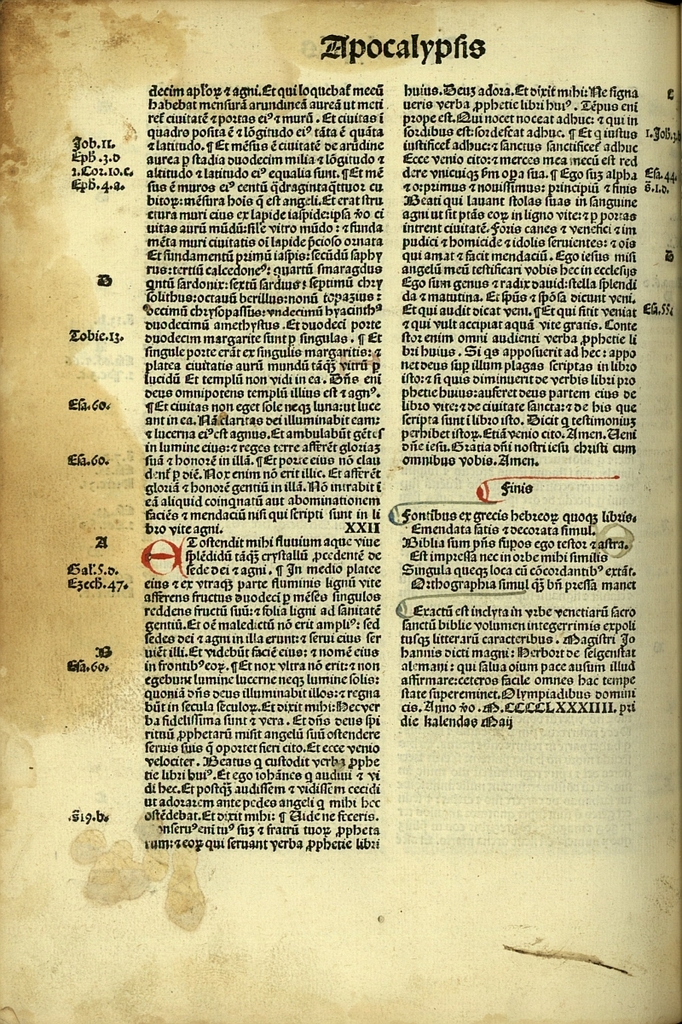 Apocalypsis
decim apl'oꝝ ⁊ agni. Et qui loquebat̃ mecũ
habebat mensurã arundineã aureã ut meti
ret̃ civitatẽ ⁊ portas eiꝰ ⁊ murũ. Et civitas ĩ
quadro posita ẽ ⁊ lõgitudo eiꝰ tãta ẽ quãta
Job. 11.
⁊ latitudo. ¶ Et mẽsus ẽ civitatẽ de arũdine
Eph. 3. d
aurea ꝑ stadia duodecim milia ⁊ lõgitudo ⁊
1. Cor. 10. c.
altitudo ⁊ latitudo eiꝰ equalia sunt. ¶ Et mẽ
Eph. 4. a.
sus ẽ muros eiꝰ centũ q̃dragintaq̃ttuor cu
bitoꝝ: mẽsura hoĩs q̃ est angeli. Et erat stru
ctura muri eius ex lapide iaspide: ipsa ṽo ci
vitas aurũ mũdũ: sile vitro mũdo: ⁊ funda
mẽta muri civitatis oĩ lapide p̃cioso ornata
Et fundamentũ primũ iaspis: secũdũ saphy
rus: tertiũ calcedoneꝰ: quartũ smaragdus
B
qntũ sardonix: sextũ sardius: septimũ chry
solithus: octauũ berillus: nonũ topazius:
decimũ chrysopassus: vndecimũ hyacinthꝰ
duodecimũ amethystus. Et duodeci porte
Tobie. 13.
duodecim margarite sunt ꝑ singulas. ¶ Et
singule porte erãt ex singulis margaritis: ⁊
platea civitatis aurũ mundũ tãq̃ȝ vitrũ ꝑ
lucidũ Et templũ non vidi in ea. Dñs eni
deus omnipotens templũ illius est ⁊ agnꝰ.
Esa. 60.
¶ Et civitas non eget sole neqȝ luna: ut luce
ant in ea. Nã claritas dei illuminabit eam:
⁊ lucerna eiꝰ est agnus. Et ambulabũt gẽtes
in lumine eius: ⁊ reges terre afferẽt gloriaȝ
Esa. 60.
suã ⁊ honorẽ in illã. ¶ Et porte eius nõ clau
dent̃ ꝑ diẽ. Nox enim nõ erit illic. Et afferẽt
gloriã ⁊ honorẽ gentiũ in illã. Nõ intrabit ĩ
eã aliquid coinqnatũ aut abominationem
faciẽs ⁊ mendaciũ nisi qui scripti sunt in li
bro vite agni. XXII
A
ET ostendit mihi fluuium aque vive
splẽdidũ tãq̃ȝ crystallũ ꝓcedentẽ de
Gal. 5. d.
sede dei ⁊ agni. ¶ In medio platee
Ezech. 47.
eius ⁊ ex vtraqȝ parte fluminis lignũ vite
afferens fructus duodeci ꝑ mẽses singulos
reddens fructũ suũ: ⁊ folia ligni ad sanitatẽ
gentiũ. Et oẽ maledictũ nõ erit ampliꝰ: sed
sedes dei ⁊ agni in illa erunt: ⁊ servi eius ser
B
viẽt illi. Et videbũt faciẽ eius: ⁊ nomẽ eius
Esa. 60.
in frontibꝰ eoꝝ. ¶ Et nox vltra nõ erit: ⁊ non
egebunt lumine lucerne neqȝ lumine solis:
quoniã dñs deus illuminabit illos: ⁊ regna
bũt in secula seculoꝝ. Et dixit mihi: Hec ver
ba fidelissima sunt ⁊ vera. Et dñs deus spi
ritũũ ꝓphetarũ misit angelũ suũ ostendere
servis suis q̃ oportet fieri cito. Et ecce venio
velociter. Beatus q custodit verba ꝓphe
tie libri huiꝰ. Et ego iohãnes q audivi ⁊ vi
di hec. Et postq̃ȝ audissem ⁊ vidissem cecidi
ut adorarem ante pedes angeli q mihi hec
s̃. 19. b.
ostẽdebat. Et dixit mihi: ¶ Vide ne feceris.
Conservꝰ eni tuꝰ suȝ ⁊ fratrũ tuoꝝ ꝓpheta
rum: ⁊ eoꝝ qui servant verba ꝓphetie libri
huius. Deuȝ adora. Et dixit mihi: Ne signa
C
veris verba ꝓphetie libri huiꝰ. Tẽpus eni
prope est. Qui nocet noceat adhuc: ⁊ qui in
sordibus est: sordescat adhuc. ¶ Et q iustus
1. Joh. 3.
iustificet̃ adhuc: ⁊ sanctus sanctificet̃ adhuc
Ecce venio cito: ⁊ merces mea mecũ est red
dere vnicuiqȝ ꝓm oꝑa sua. ¶ Ego suȝ alpha
Esa. 44.
⁊ o: primus ⁊ novissimus: principiũ ⁊ finis
s̃. 1. d.
Beati qui lavant stolas suas in sanguine
agni ut sit ptãs eoꝝ in ligno vite: ⁊ ꝑ portas
intrent civitatẽ. Foris canes ⁊ venefici ⁊ im
pudici ⁊ homicide ⁊ idolis servientes: ⁊ oĩs
qui amat ⁊ facit mendaciũ. Ego iesus misi
D
angelũ meũ testificari vobis hec in ecclesijs
Ego sum genus ⁊ radix david: stella splendi
da ⁊ matutina. Et spũs ⁊ spõsa dicunt veni.
Et qui audit dicat veni. ¶ Et qui sitit veniat
Esa. 55.
⁊ qui vult accipiat aquã vite gratis. Conte
stor enim omni audienti verba ꝓphetie li
bri huius. Si qs apposuerit ad hec: appo
net deus suꝑ illum plagas scriptas in libro
isto: ⁊ si quis diminuerit de verbis libri pro
phetie huius: auferet deus partem eius de
libro vite: ⁊ de civitate sancta: ⁊ de his que
scripta sunt ĩ libro isto. Dicit q testimoniuȝ
perhibet istoꝝ. Etiã venio cito. Amen. Veni
dñe iesu. Gratia dñi nostri iesu christi cum
omnibus vobis. Amen.
¶ Finis
¶ Fontibus ex grecis hebreoꝝ quoqȝ libris.
Emendata satis ⁊ decorata simul.
Biblia sum pñs supos ego testor ⁊ astra.
Est impressa nec in orbe mihi similis
Singula queqȝ loca cũ cõcordantibꝰ extãt.
Orthographia simul q̃ȝ bñ pressa manet
¶ Exactũ est inclyta in vrbe venetiarũ sacro
sanctũ biblie volumen integerrimis expoli
tusqȝ litterarũ caracteribus. Magistri Jo
hannis dicti magni: Herbort de selgenstat
alemani: qui salua oĩum pace ausum illud
affirmare: ceteros facile omnes hac tempe
state supereminet. Olympiadibus domini
cis. Anno ṽo. M. CCCCLXXXIIII. pri
die kalendas Maij